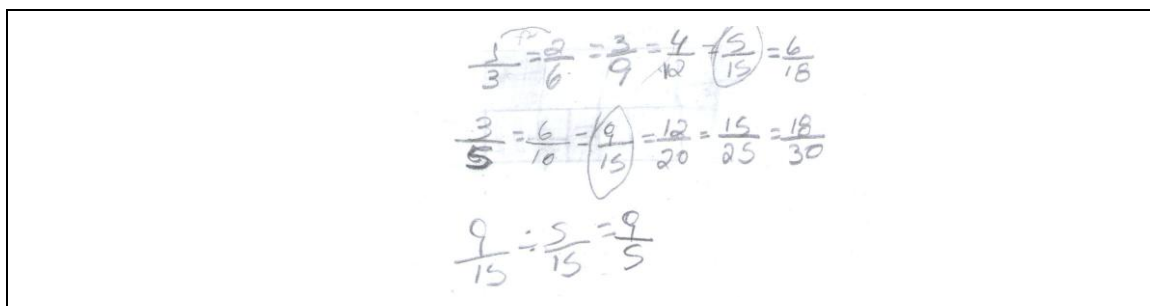 1/3 = 2/6 = 3/9 = 4/12 = 5/15 = 6/18
3/5 = 6/10 = 9/15 = 12/20 = 15/25 = 18/30
9/15 ÷ 5/15 = 9/5